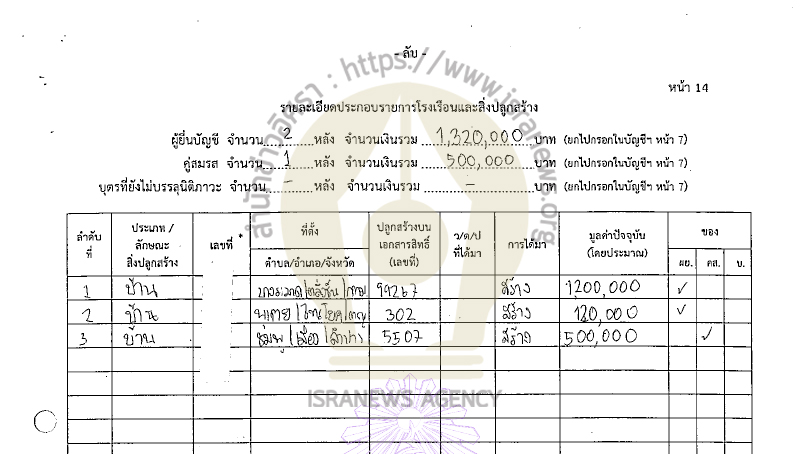 - ลับ -
หน้า 14
รายละเอียดประกอบรายการโรงเรือนและสิ่งปลูกสร้าง
ผู้ยื่นบัญชี จำนวน 2 หลัง จำนวนเงินรวม 1,320,000 บาท (ยกไปกรอกในบัญชีฯ หน้า 7)
คู่สมรส จำนวน 1 หลัง จำนวนเงินรวม 500,000 บาท (ยกไปกรอกในบัญชีฯ หน้า 7)
บุตรที่ยังไม่บรรลุนิติภาวะ จำนวน - หลัง จำนวนเงินรวม - บาท (ยกไปกรอกในบัญชีฯ หน้า 7)
ลำดับที่ ประเภท / ลักษณะ สิ่งปลูกสร้าง เลขที่ * ที่ตั้ง ตำบล/อำเภอ/จังหวัด ปลูกสร้างบนเอกสารสิทธิ์ (เลขที่) ว/ด/ป ที่ได้มา การได้มา มูลค่าปัจจุบัน (โดยประมาณ) ของ ผย. คส. บ.
1 บ้าน 99267 สร้าง 1200,000 ✓
2 บ้าน 302 สร้าง 120,000 ✓
3 บ้าน ชมพู/เมือง/ลำปาง 5507 สร้าง 500,000 ✓
สำนักข่าวอิศรา : https://www.isranews.org
ISRANEWS AGENCY